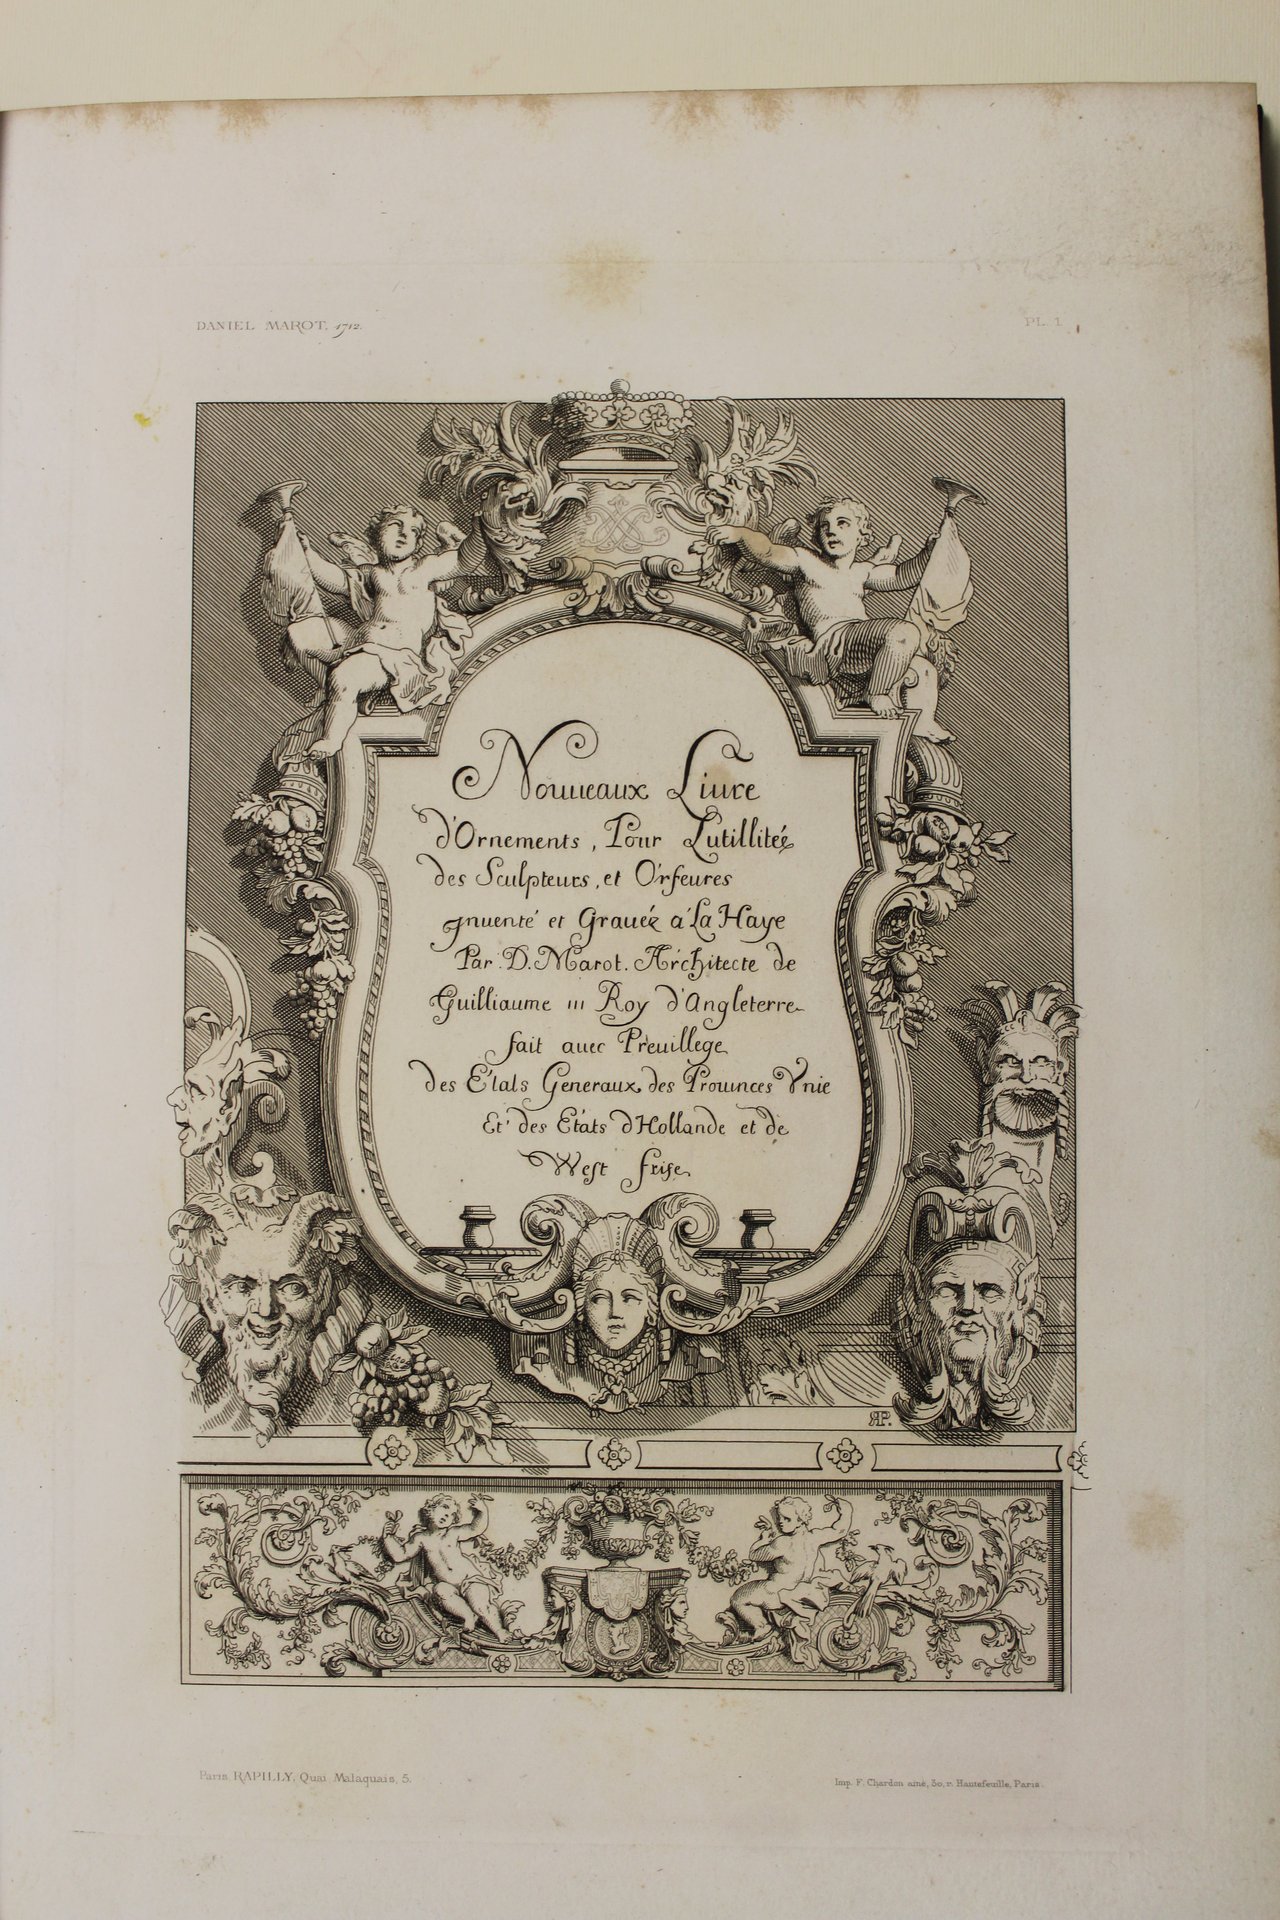 DANIEL MAROT, 1712.
PL. 1
Nouueaux Liure
d'Ornements, Pour Lutillitée
des Sculpteurs, et Orfeures
jnuenté et Grauéz a La Haye
Par D. Marot. Architecte de
Guilliaume III Roy d'Angleterre
fait auec Preuillege
des Etats Generaux des Prouinces Vnie
Et des Etats d'Hollande et de
West frise
RP.
Paris, RAPILLY, Quai Malaquais, 5.
Imp. F. Chardon ainé, 30, r. Hautefeuille, Paris.